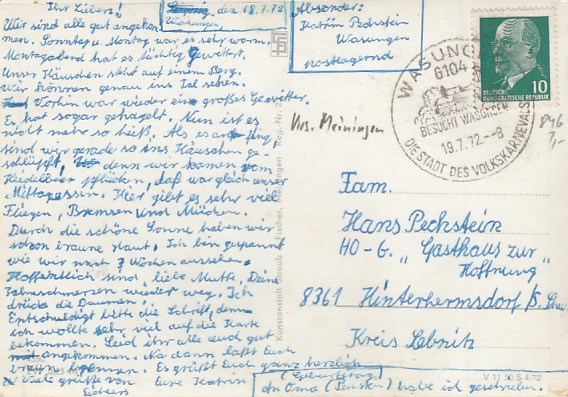 Ihr Lieben!
Wasungen, den 18.7.72
Wir sind alle gut angekom
men. Sonntag u. Montag war es sehr warm.
Montagabend hat es tüchtig gewittert.
Unser Häuschen steht auf einem Berg.
Wir können genau ins Tal sehen.
Vorhin war wieder ein großes Gewitter.
Es hat sogar gehagelt. Nun ist es
nicht mehr so heiß. Als es anfing,
sind wir gerade so ins Häuschen ge-
schlüpft, denn wir kamen vom
Heidelbeer pflücken, daß war gleich unser
Mittagessen. Hier gibt es sehr viel
Fliegen, Bremsen und Mücken.
Durch die schöne Sonne haben wir
schon braune Haut. Ich bin gespannt
wie wir nach 2 Wochen aussehen.
Hoffentlich sind, liebe Mutti, Deine
Zahnschmerzen wieder weg. Ich
drücke die Daumen!
Entschuldigt bitte die Schrift, denn
ich wollte sehr viel auf die Karte
bekommen. Seid ihr alle auch gut
angekommen. Na dann laßt Euch
braun brennen. Es grüßt Euch ganz herzlich
Eure Katrin
Viele grüße von
An Oma (Geburtstag) habe ich geschrieben.
Absender:
Katrin Pechstein
Wasungen
postlagernd
Krs. Meiningen
WASUNGEN
6104
BESUCHT WASUNGEN
19.7.72--8
DIE STADT DES VOLKSKARNEVALS
DEUTSCHE
DEMOKRATISCHE REPUBLIK
10
846
7,-
Fam.
Hans Pechstein
HO-G. "Gasthaus zur
Hoffnung"
8361 Hinterhermsdorf
Kreis Sebnitz
V 11 50 S 4 72